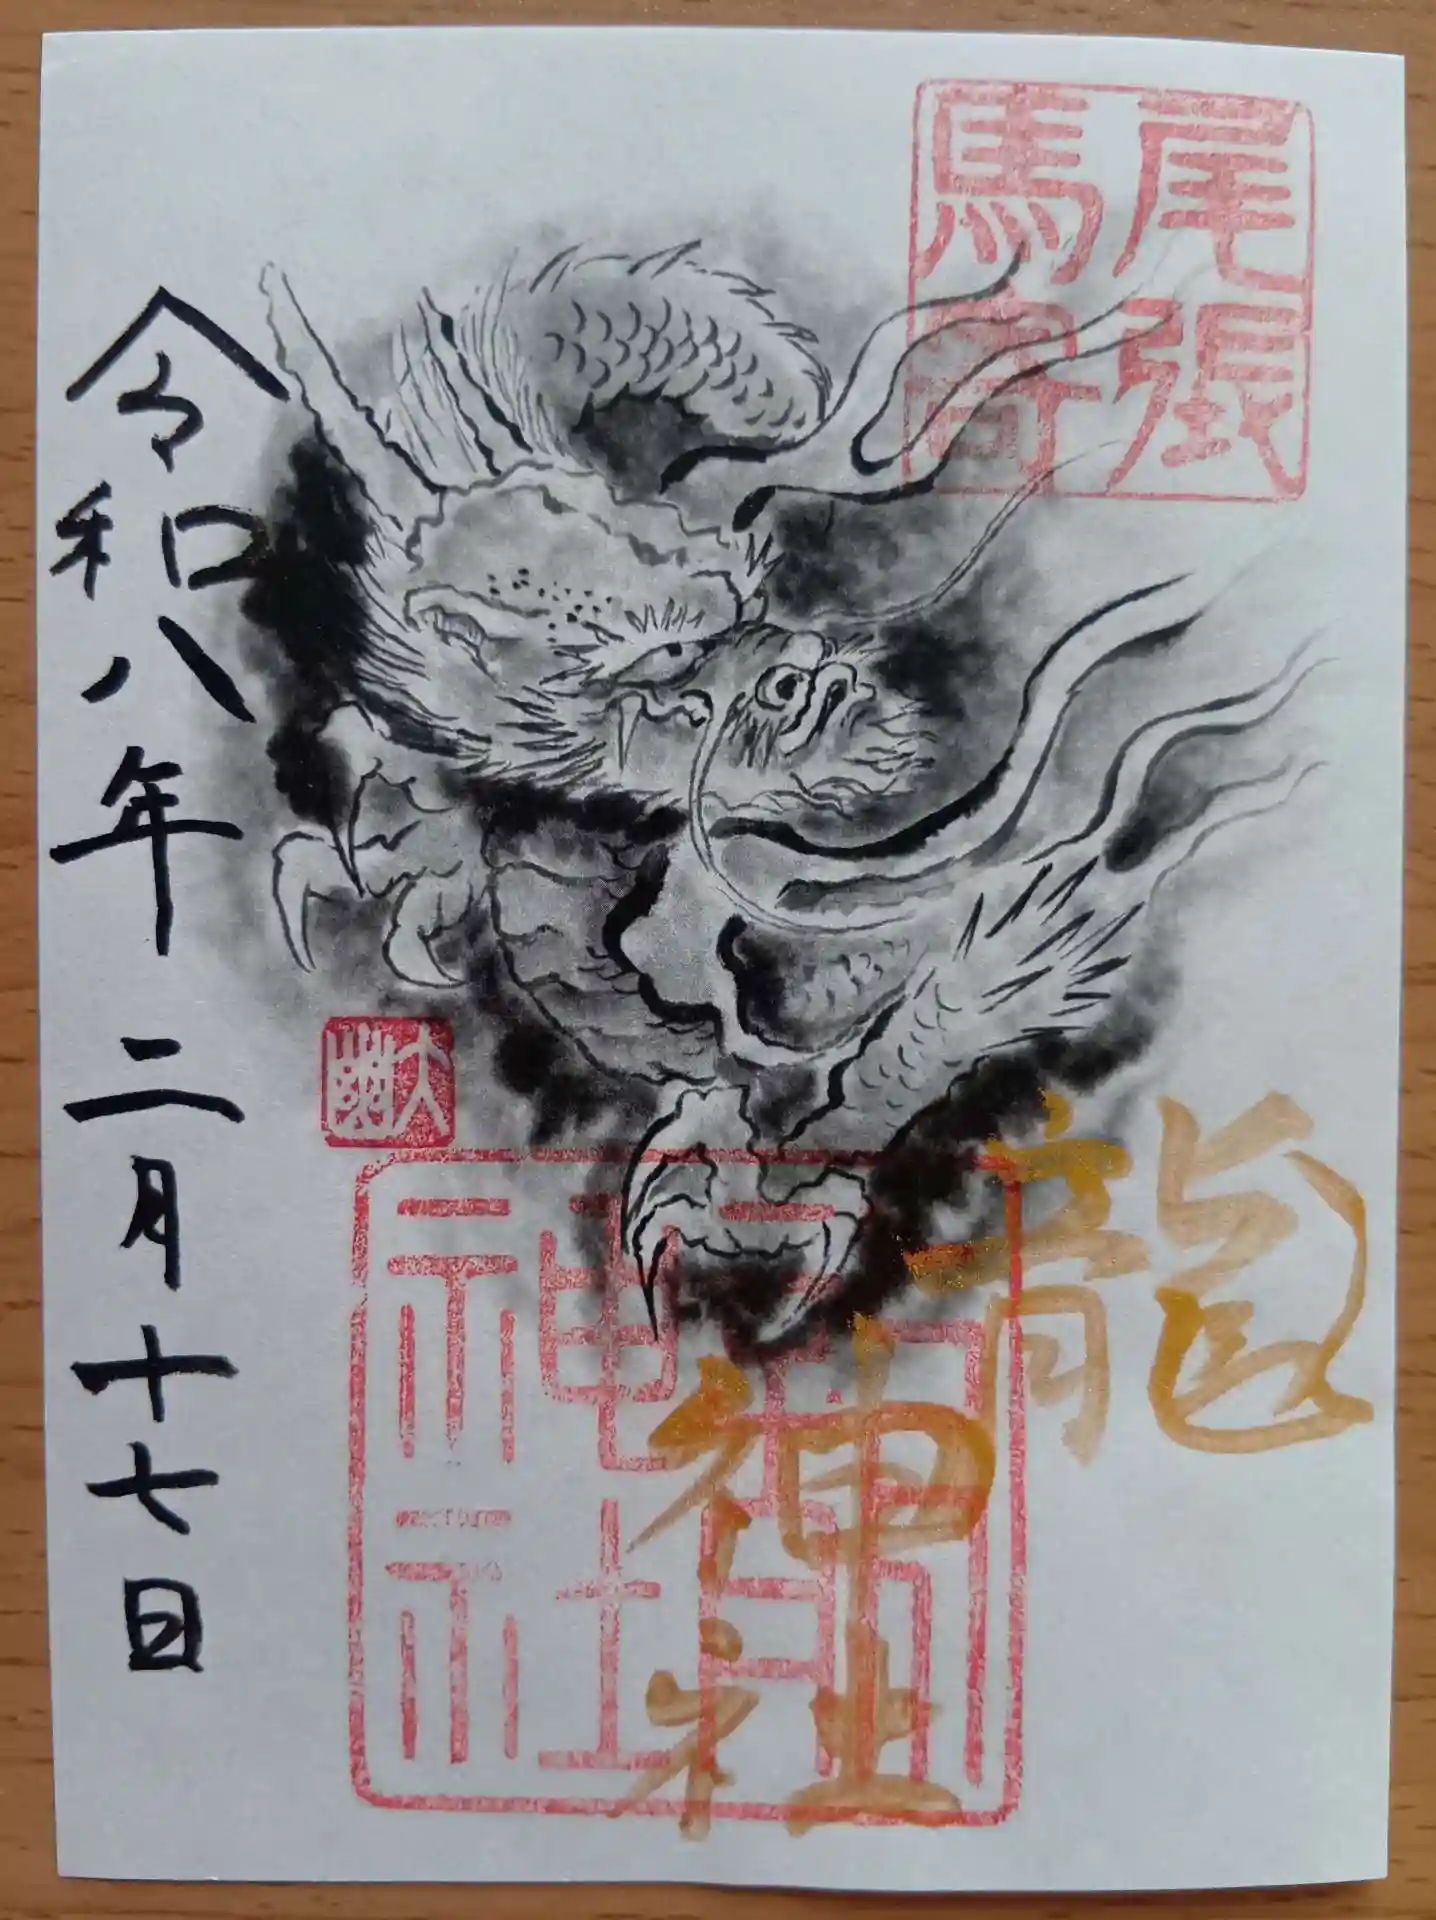 尾張
馬寄
龍
神
社
龍神社
令和八年二月十七日